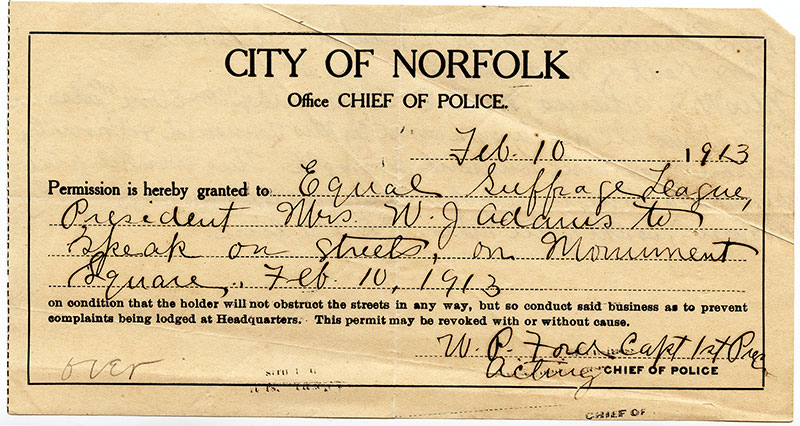 CITY OF NORFOLK
Office CHIEF OF POLICE.
Feb. 10 1913
Permission is hereby granted to Equal Suffrage League,
President Mrs. W. J Adams to
Speak on streets, on Monument
Square, Feb. 10, 1913
on condition that the holder will not obstruct the streets in any way, but so conduct said business as to prevent
complaints being lodged at Headquarters. This permit may be revoked with or without cause.
W. P. Capt 1st Prec
Acting CHIEF OF POLICE
over
CHIEF OF